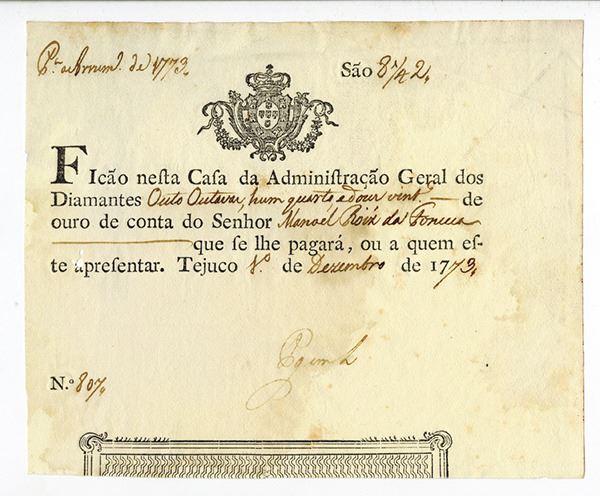 de 1773.
São 8 1/4 2,
FIcão neſta Caſa da Adminiſtração Geral dos
Diamantes Outo Outavas, hum quarto e dous vint.s de
ouro de conta do Senhor Manoel Roiz da Fonceca
que ſe lhe pagará, ou a quem eſ-
te apreſentar. Tejuco de Dezembro de 1773,
N.º 807,